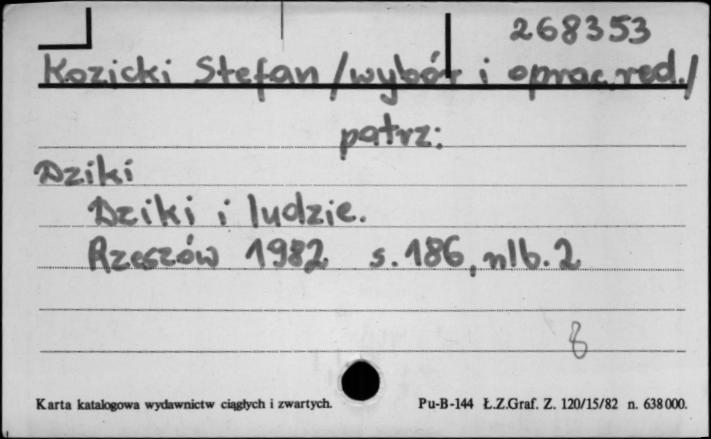 268353
Kozicki Stefan /wybór i oprac. red./
patrz:
Dziki
Dziki i ludzie.
Rzeszów 1982 s. 186, nlb. 2
8
Karta katalogowa wydawnictw ciągłych i zwartych. Pu-B-144 Ł.Z.Graf. Z. 120/15/82 n. 638000.